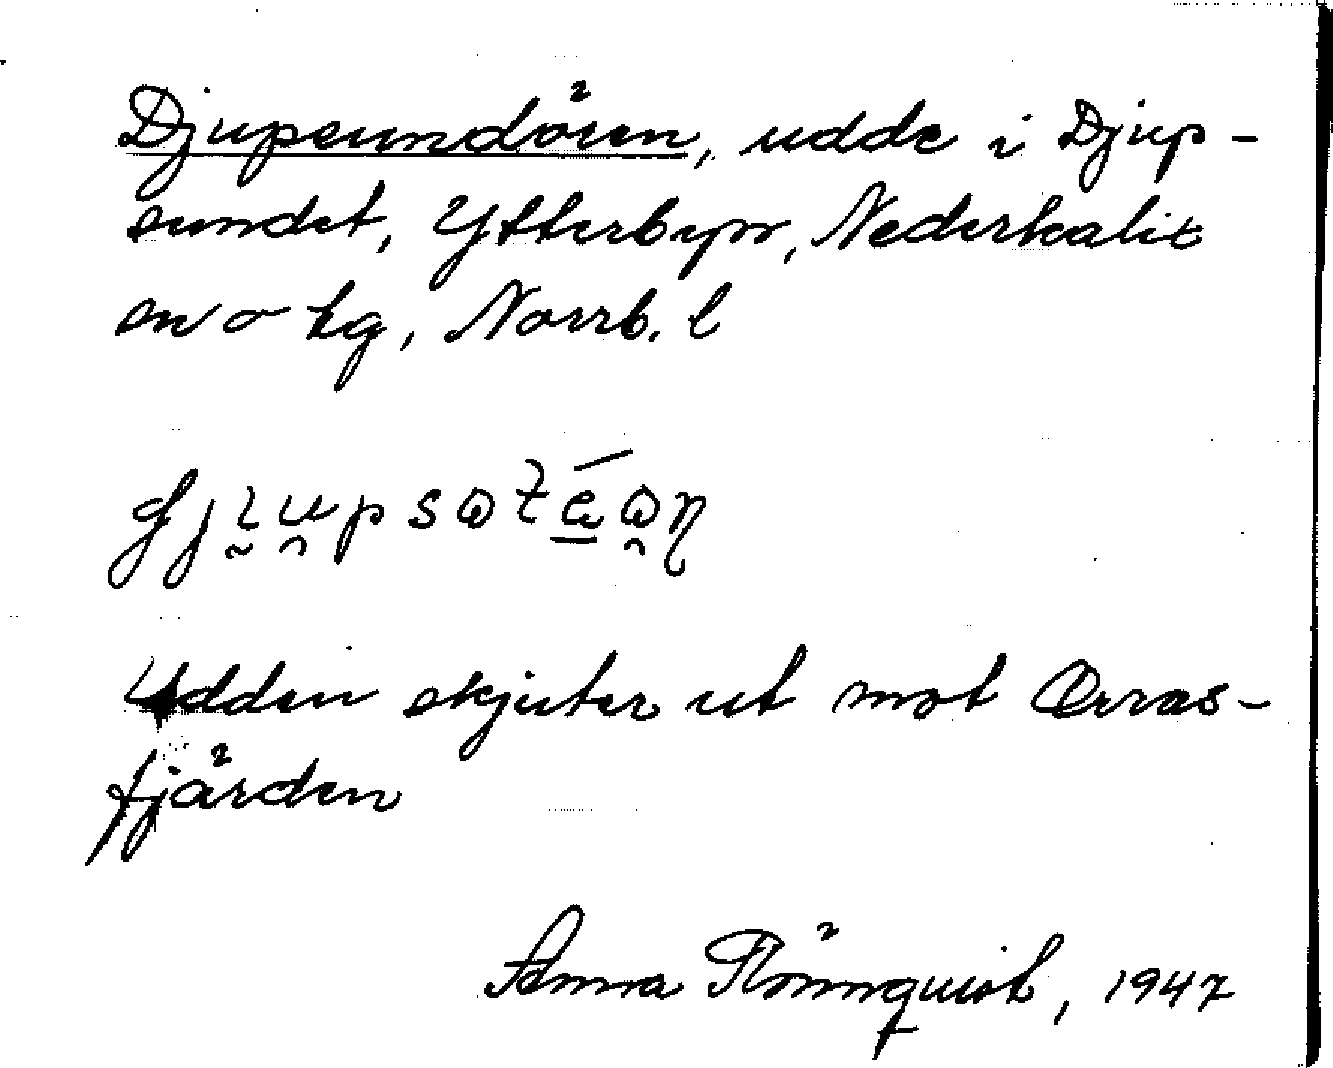 Djupsundören, udde i Djup-
sundet, Ytterbyn, Nederkalix
sn o tg, Norrb. l
Udden skjuter ut mot
fjärden
Anna, 1947